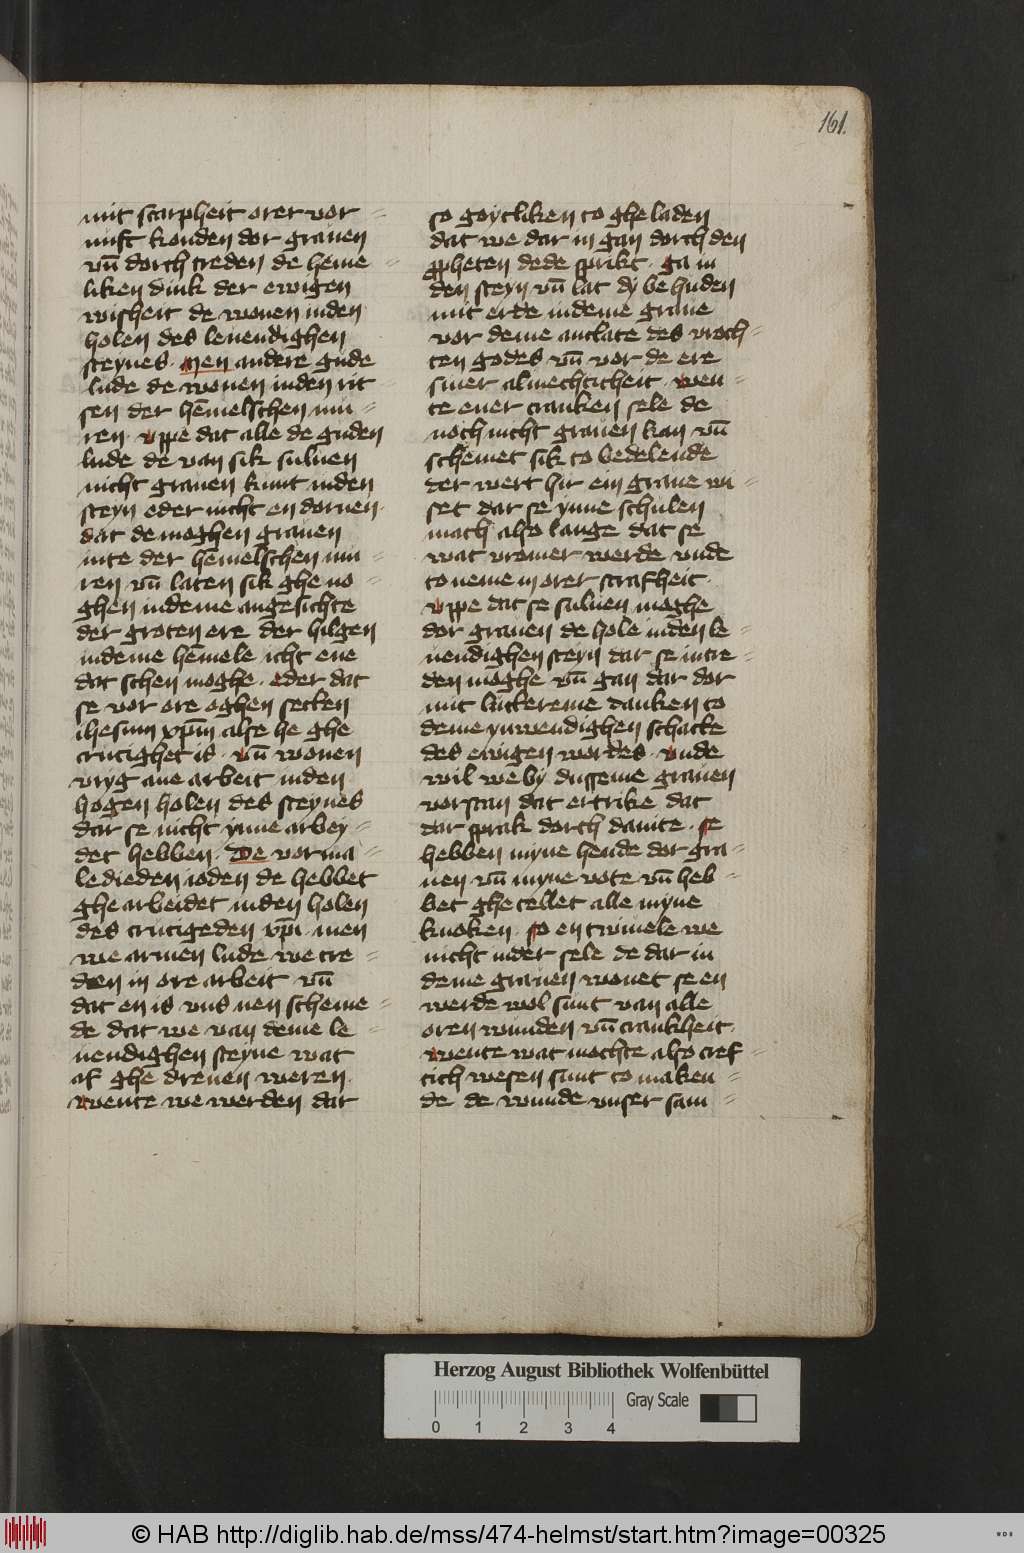 161.
mit scarpheit orer vor=
nuft konden dor grauen
vn̄ dorch treden de heme=
liken dink der ewigen
wisheit de wonen inden
holen des leuendighen
steynes. Men andere gude
lude de wonen inden rit=
sen der hēmelschen mu=
ren. vppe dat alle de guden
lude de van sik suluen
nicht grauen kunt inden
steyn eder nicht en doruen.
dat de moghen grauen
inte der hēmelschen mu=
ren vn̄ laten sik ghe no=
ghen indeme angesichte
der groten ere der hilgen
indeme hēmele icht ene
dat schen moghe. eder dat
se vor ore oghen setten
ihesum xp̄m alse he ghe
crucighet is. vn̄ wonen
vryg ane arbeit inden
hogen holen des steynes
dar se nicht ynne arbey=
det hebben. De vorma=
ledieden ioden de hebbet
ghe arbeidet inden holen
des crucigeden xp̄i. men
we armen lude we tre=
den in ore arbeit vn̄
dat en is vns nen scheme=
de dat we van deme le=
uendighen steyne wat
af ghe dreuen weren.
wente we werden dar
so goytliken to ghe laden
dat we dar in gan dorch den
ꝓpheten dede sprikt. ga in
den steyn vn̄ lat dy be huden
mit erde indeme graue
vor deme antlate des vroch=
ten godes vn̄ vor de ere
siner almechticheit. wen=
te ener cranken sele de
noch nicht grauen kan vn̄
schemet sik to bedelende
der wert hir ein graue wi=
set dar se ynne schulen
mach also lange dat se
wat vromer werde vnde
to neme in orer starfheit.
vppe dat se suluen moghe
dor grauen de hole inden le=
uendighen steyn dar se intre=
den moghe vn̄ gan dar dor
mit luttereme danken to
deme ynwendighen schatte
des ewigen wordes. vnde
wil we by dusseme grauen
vorstan dat ertrike dat
dar sprak dorch dauite. se
hebben myne hende dor gra=
uen vn̄ myne vote vn̄ heb=
bet ghe tellet alle myne
knoken. so en twiuele we
nicht inder sele de dar in
deme grauen wonet se en
werde wol sunt van alle
oren wunden vn̄ crankheit.
wente wat mochte also cref=
tich wesen sunt to maken=
de de wunde vnser sam=
Herzog August Bibliothek Wolfenbüttel
Gray Scale
0 1 2 3 4
© HAB http://diglib.hab.de/mss/474-helmst/start.htm?image=00325